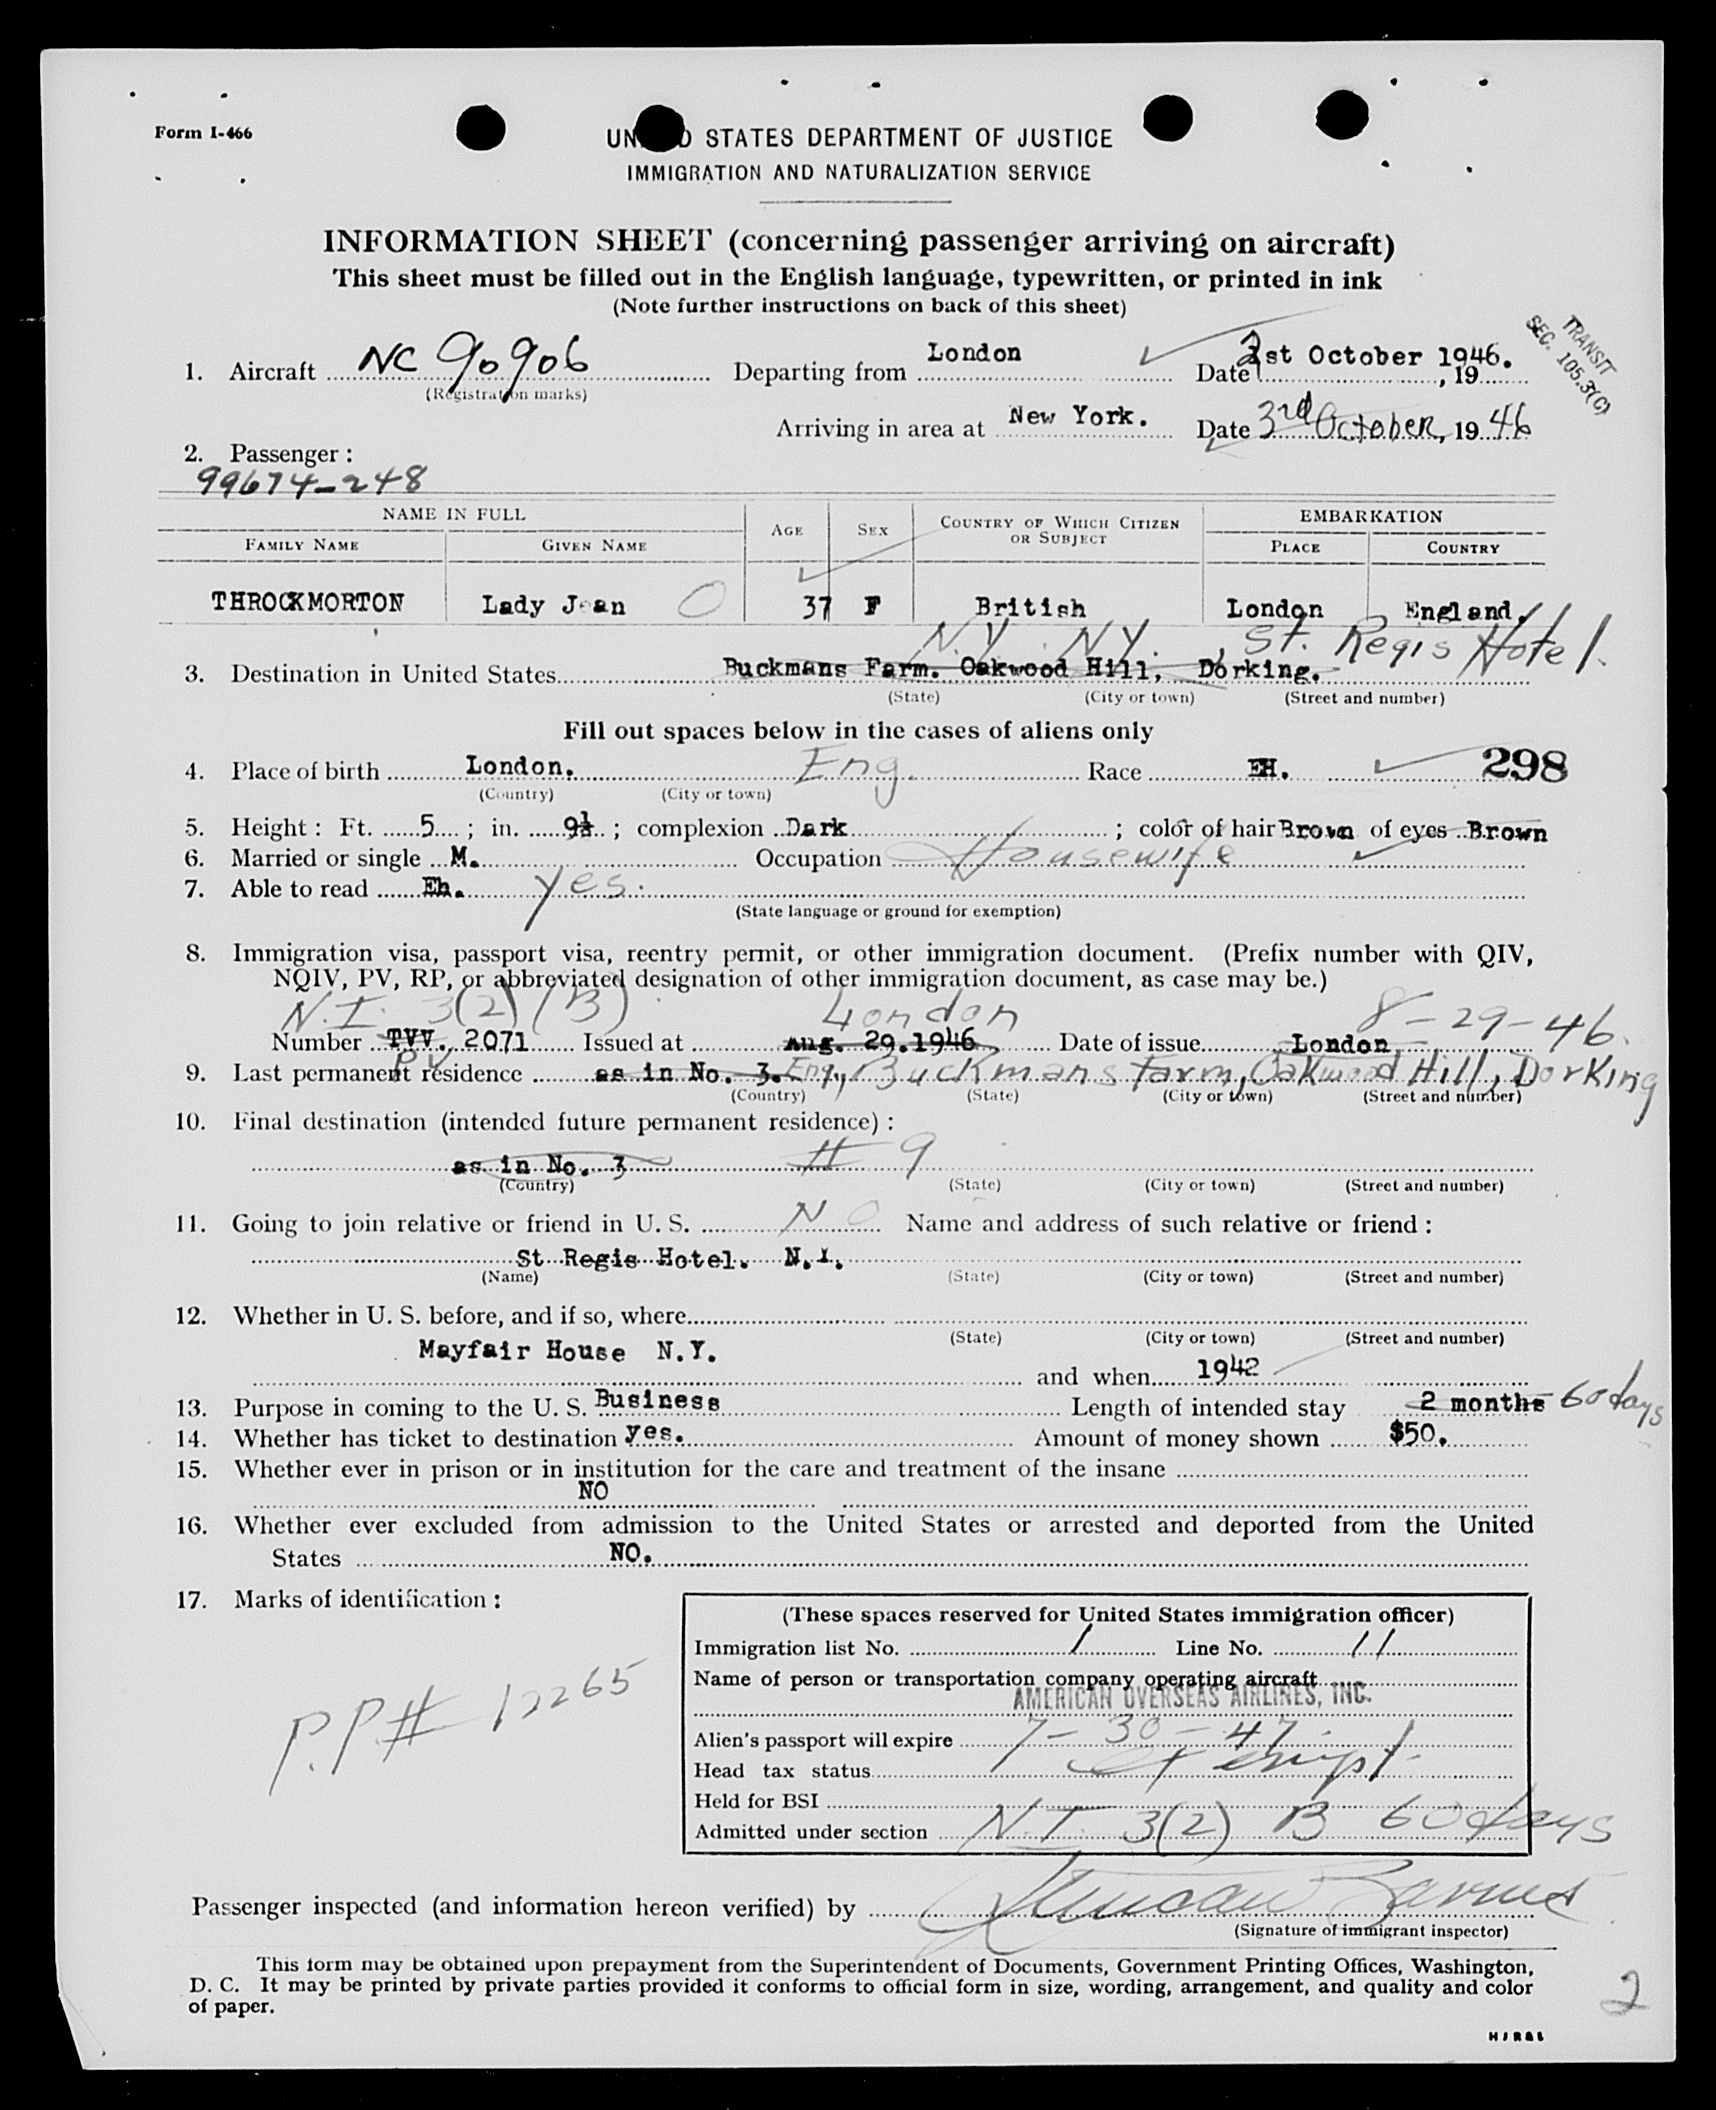 Form I-466
UNITED STATES DEPARTMENT OF JUSTICE
IMMIGRATION AND NATURALIZATION SERVICE
INFORMATION SHEET (concerning passenger arriving on aircraft)
This sheet must be filled out in the English language, typewritten, or printed in ink
(Note further instructions on back of this sheet)
TRANSIT
SEC. 105.3(C)
1. Aircraft NC 90906 Departing from London Date st October 1946. , 19
(Registration marks)
Arriving in area at New York. Date 3rd October, 19 46
2. Passenger:
99674-248
NAME IN FULL AGE SEX COUNTRY OF WHICH CITIZEN OR SUBJECT EMBARKATION
FAMILY NAME GIVEN NAME PLACE COUNTRY
THROCKMORTON Lady Jean 37 F British London England.
N.Y. N.Y. , St. Regis Hotel.
3. Destination in United States Buckmans Farm. Oakwood Hill, Dorking.
(State) (City or town) (Street and number)
Fill out spaces below in the cases of aliens only
4. Place of birth London. Eng. Race EH. 298
(Country) (City or town)
5. Height: Ft. 5 ; in. 9½ ; complexion Dark ; color of hair Brown of eyes Brown
6. Married or single M. Occupation Housewife
7. Able to read Eh. Yes.
(State language or ground for exemption)
8. Immigration visa, passport visa, reentry permit, or other immigration document. (Prefix number with QIV,
NQIV, PV, RP, or abbreviated designation of other immigration document, as case may be.)
N.I. 3(2)(B) London 8-29-46.
Number TVV. 2071 Issued at Aug. 29.1946 Date of issue London
PV
9. Last permanent residence as in No. 3. Eng, Buckmans Farm, Oakwood Hill, Dorking
(Country) (State) (City or town) (Street and number)
10. Final destination (intended future permanent residence):
as in No. 3 # 9
(Country) (State) (City or town) (Street and number)
11. Going to join relative or friend in U. S. NO Name and address of such relative or friend:
St Regis Hotel. N.Y.
(Name) (State) (City or town) (Street and number)
12. Whether in U. S. before, and if so, where
(State) (City or town) (Street and number)
Mayfair House N.Y. and when 1942
13. Purpose in coming to the U. S. Business Length of intended stay 2 months 60 days
14. Whether has ticket to destination yes. Amount of money shown $50.
15. Whether ever in prison or in institution for the care and treatment of the insane
NO
16. Whether ever excluded from admission to the United States or arrested and deported from the United
States NO.
17. Marks of identification:
P.P.# 12265
(These spaces reserved for United States immigration officer)
Immigration list No. 1 Line No. 11
Name of person or transportation company operating aircraft
AMERICAN OVERSEAS AIRLINES, INC.
Alien's passport will expire 7-30-47
Head tax status Exempt
Held for BSI
Admitted under section N.I. 3(2) B 60 days
Passenger inspected (and information hereon verified) by
(Signature of immigrant inspector)
This form may be obtained upon prepayment from the Superintendent of Documents, Government Printing Offices, Washington,
D. C. It may be printed by private parties provided it conforms to official form in size, wording, arrangement, and quality and color
of paper.
2